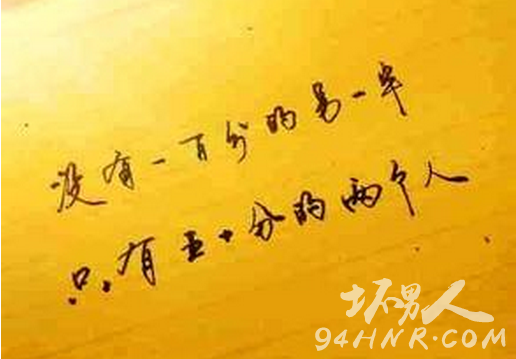 没有一百分的另一半
只有五十分的两个人
坏男人
94HNR.COM